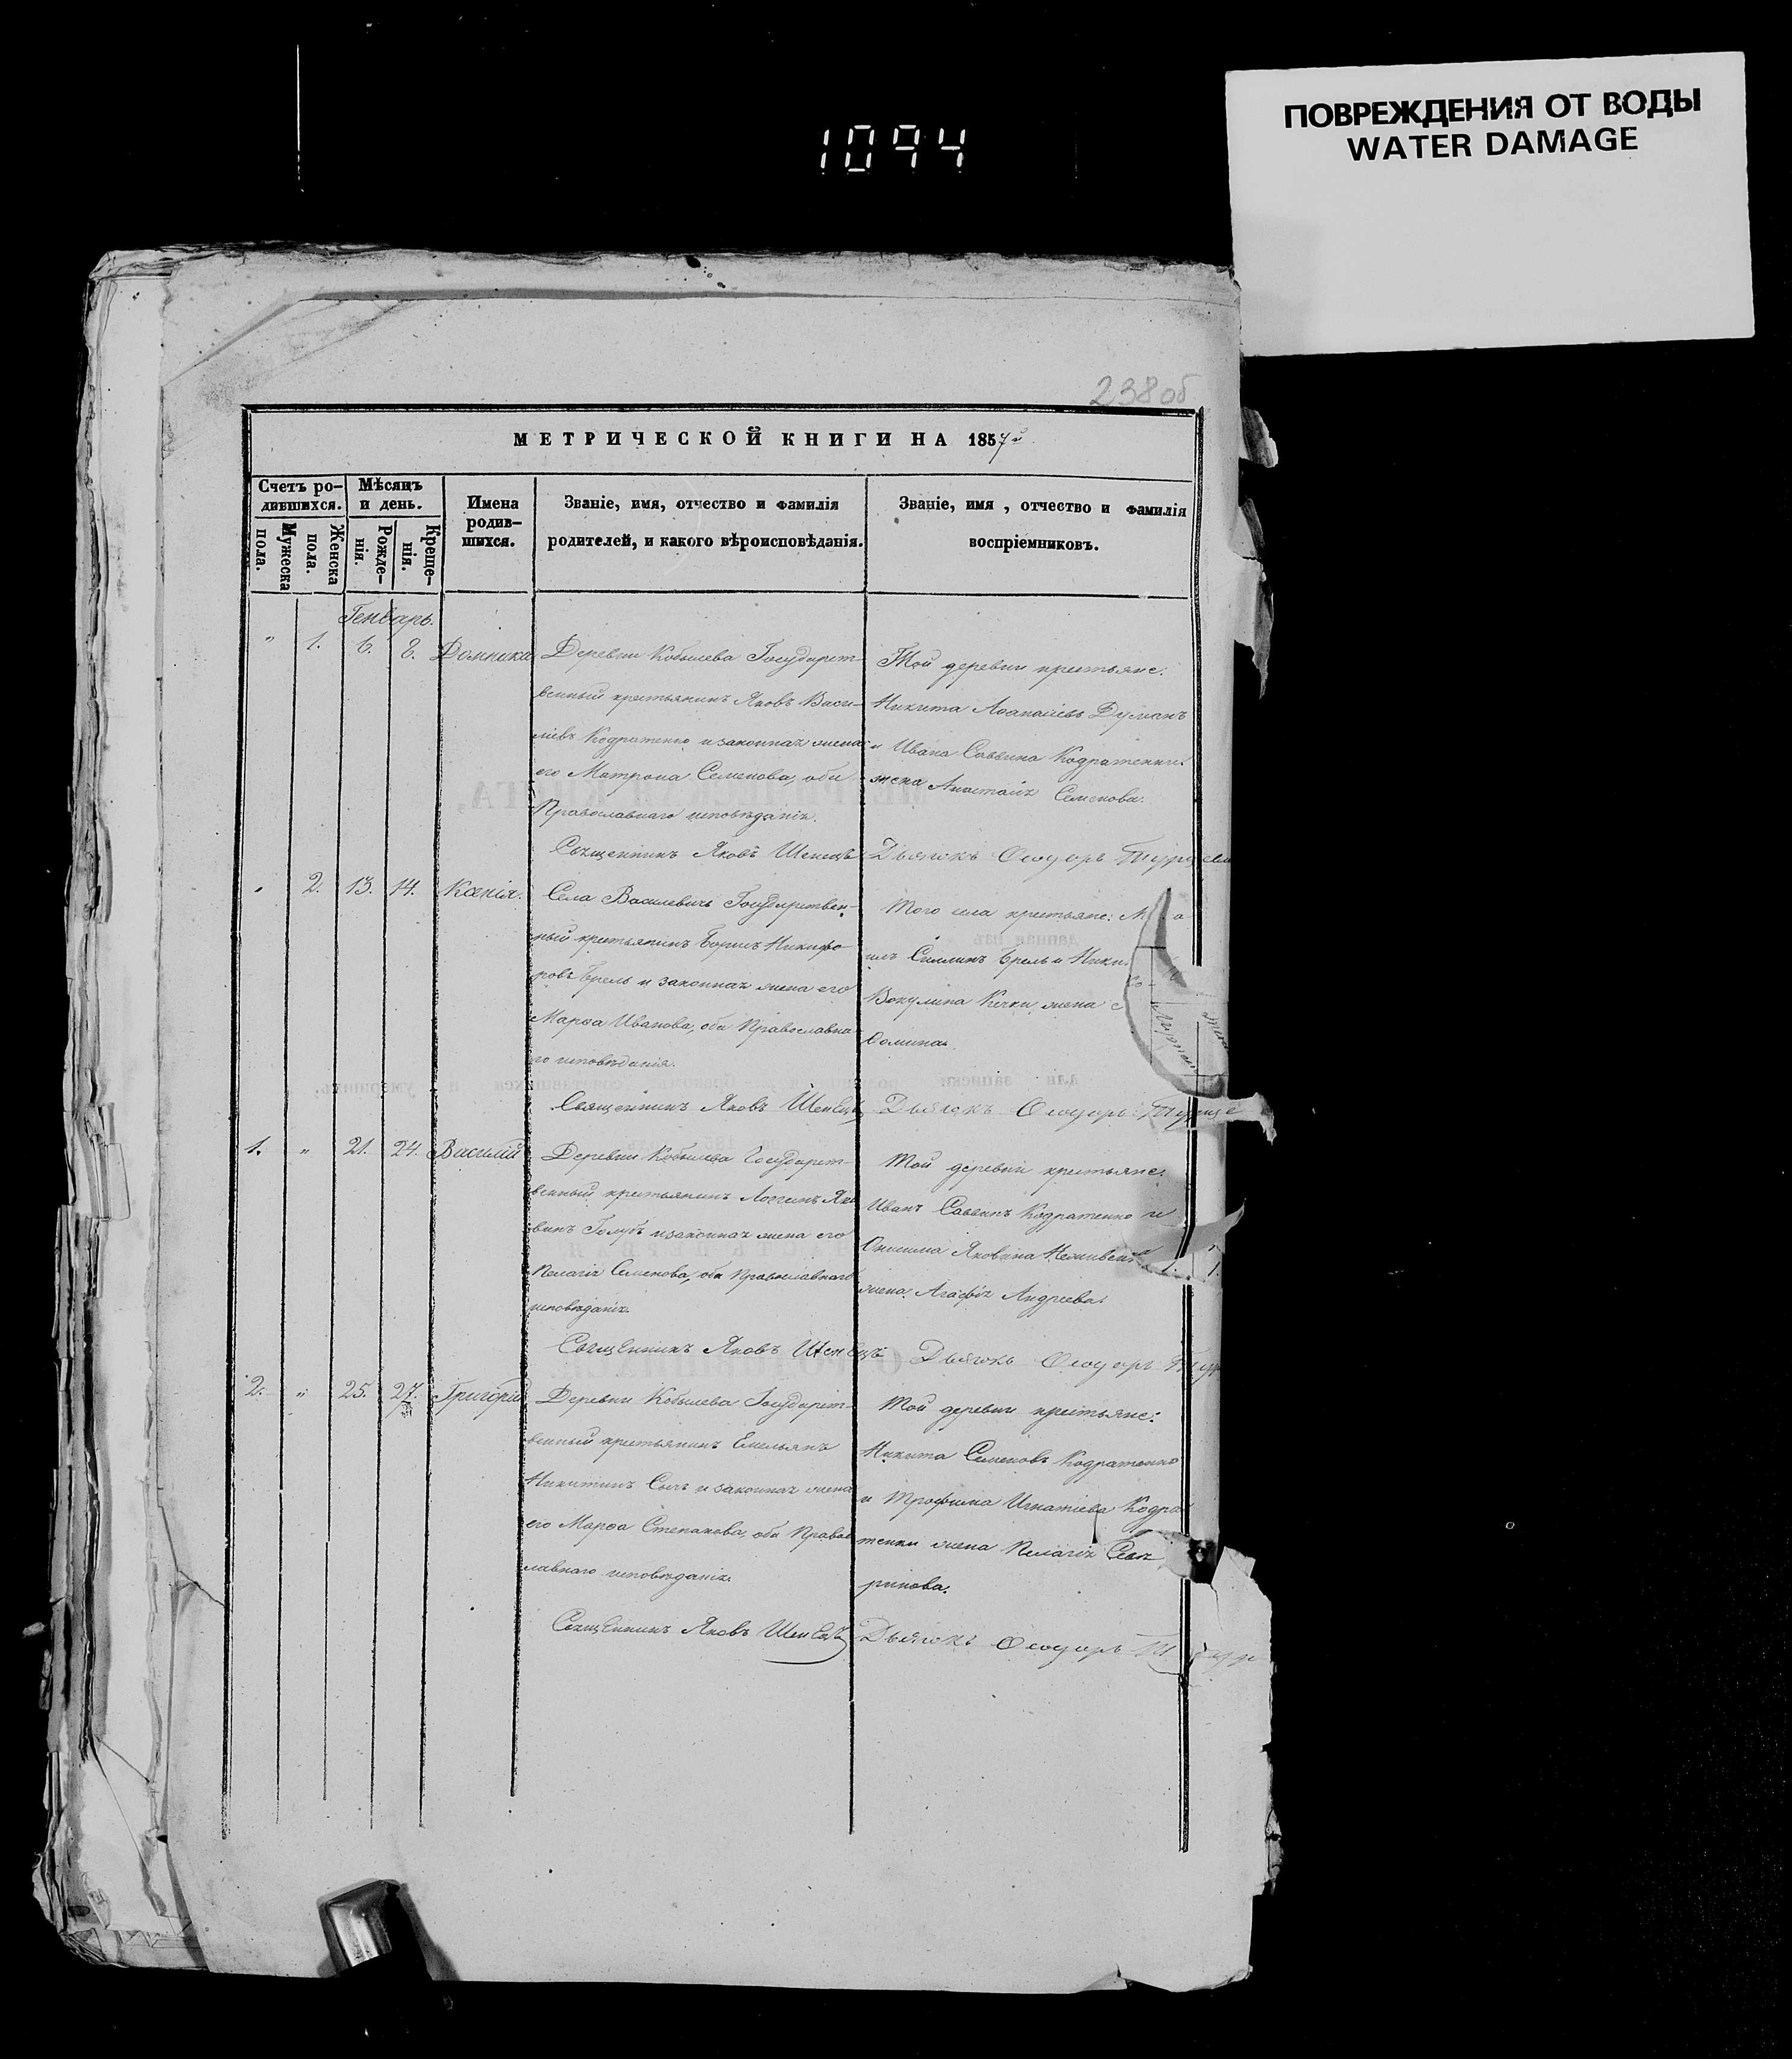 ПОВРЕЖДЕНИЯ ОТ ВОДЫ
WATER DAMAGE
1094
238об
МЕТРИЧЕСКОЙ КНИГИ НА 1857й
Счетъ ро-
дившихся.
Мужеска
пола.
Женска
пола.
Мѣсяцъ
и день.
Рожде-
нія.
Креще-
нія.
Имена
родив-
шихся.
Званіе, имя, отчество и фамилія
родителей, и какого вѣроисповѣданія.
Званіе, имя, отчество и фамилія
воспріемниковъ.
Генварь.
" 1. 6. 8. Домника
Деревни Кобылева Государст-
венный крестьянинъ Яковъ Васи-
ліевъ Кодратенко и законная жена
его Матрона Семенова, оба
Православнаго исповѣданія.
Той деревни крестьяне:
Никита Аѳанасіевъ Думанъ
и Ивана Саввина Кодратенки
жена Анастасія Семенова.
Священникъ Яковъ Шепецъ Дьячокъ Ѳеодоръ
" 2. 13. 14. Ксенія.
Села Василевичъ Государствен-
ный крестьянинъ Борисъ Никифо-
ровъ Брель и законная жена его
Марѳа Иванова, оба Православна-
го исповѣданія.
Того села крестьяне:
Брель и Ники
жена
Ѳомина.
Священникъ Яковъ Шепецъ Дьячокъ Ѳеодоръ
1. " 21. 24. Василій
Деревни Кобылева Государст-
венный крестьянинъ Логгинъ Яко
винъ Голубъ и законная жена его
Пелагія Семенова, оба Православнаго
исповѣданія.
Той деревни крестьяне:
Иванъ Саввинъ Кодратенко и
Онисима Яковина
жена Агафія Андреева.
Священникъ Яковъ Шепецъ Дьячокъ Ѳеодоръ
2. " 25. 27. Григорій
Деревни Кобылева Государст-
венный крестьянинъ Емельянъ
Никитинъ Сычъ и законная жена
его Марѳа Степанова, оба Правос
лавнаго исповѣданія.
Той деревни крестьяне:
Никита Семеновъ Кодратенко
и Трофима Игнатіева Кодра
тенки жена Пелагія Севе
ринова.
Священникъ Яковъ Шепецъ Дьячокъ Ѳеодоръ